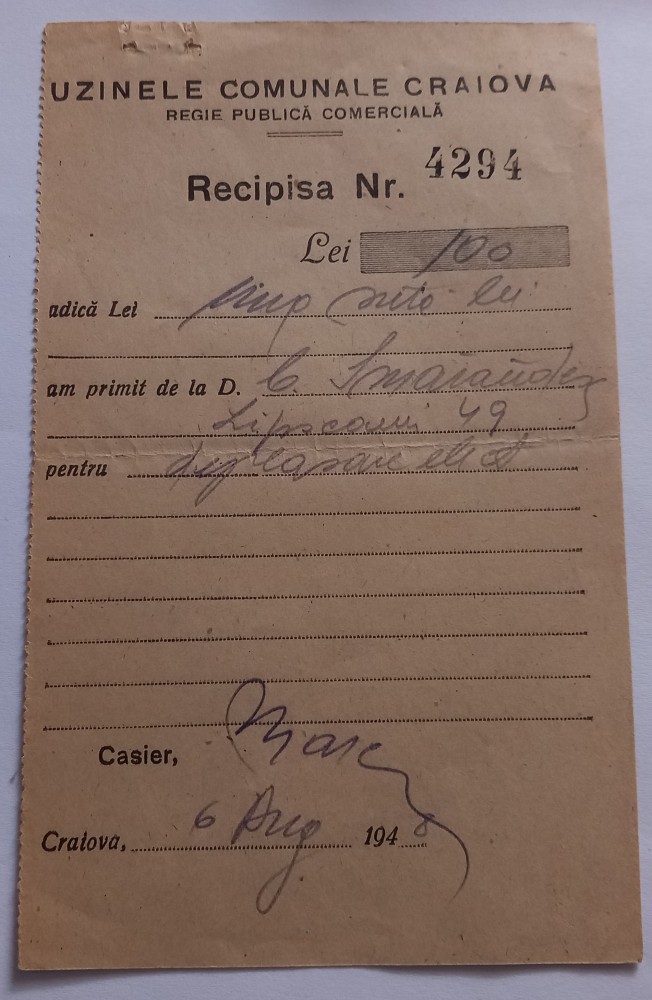 UZINELE COMUNALE CRAIOVA
REGIE PUBLICĂ COMERCIALĂ
Recipisa Nr. 4294
Lei 100
adică Lei una suta lei
am primit de la D. C. Smarandez
Lipscani 49
pentru
Casier,
Craiova, 6 Aug 1948